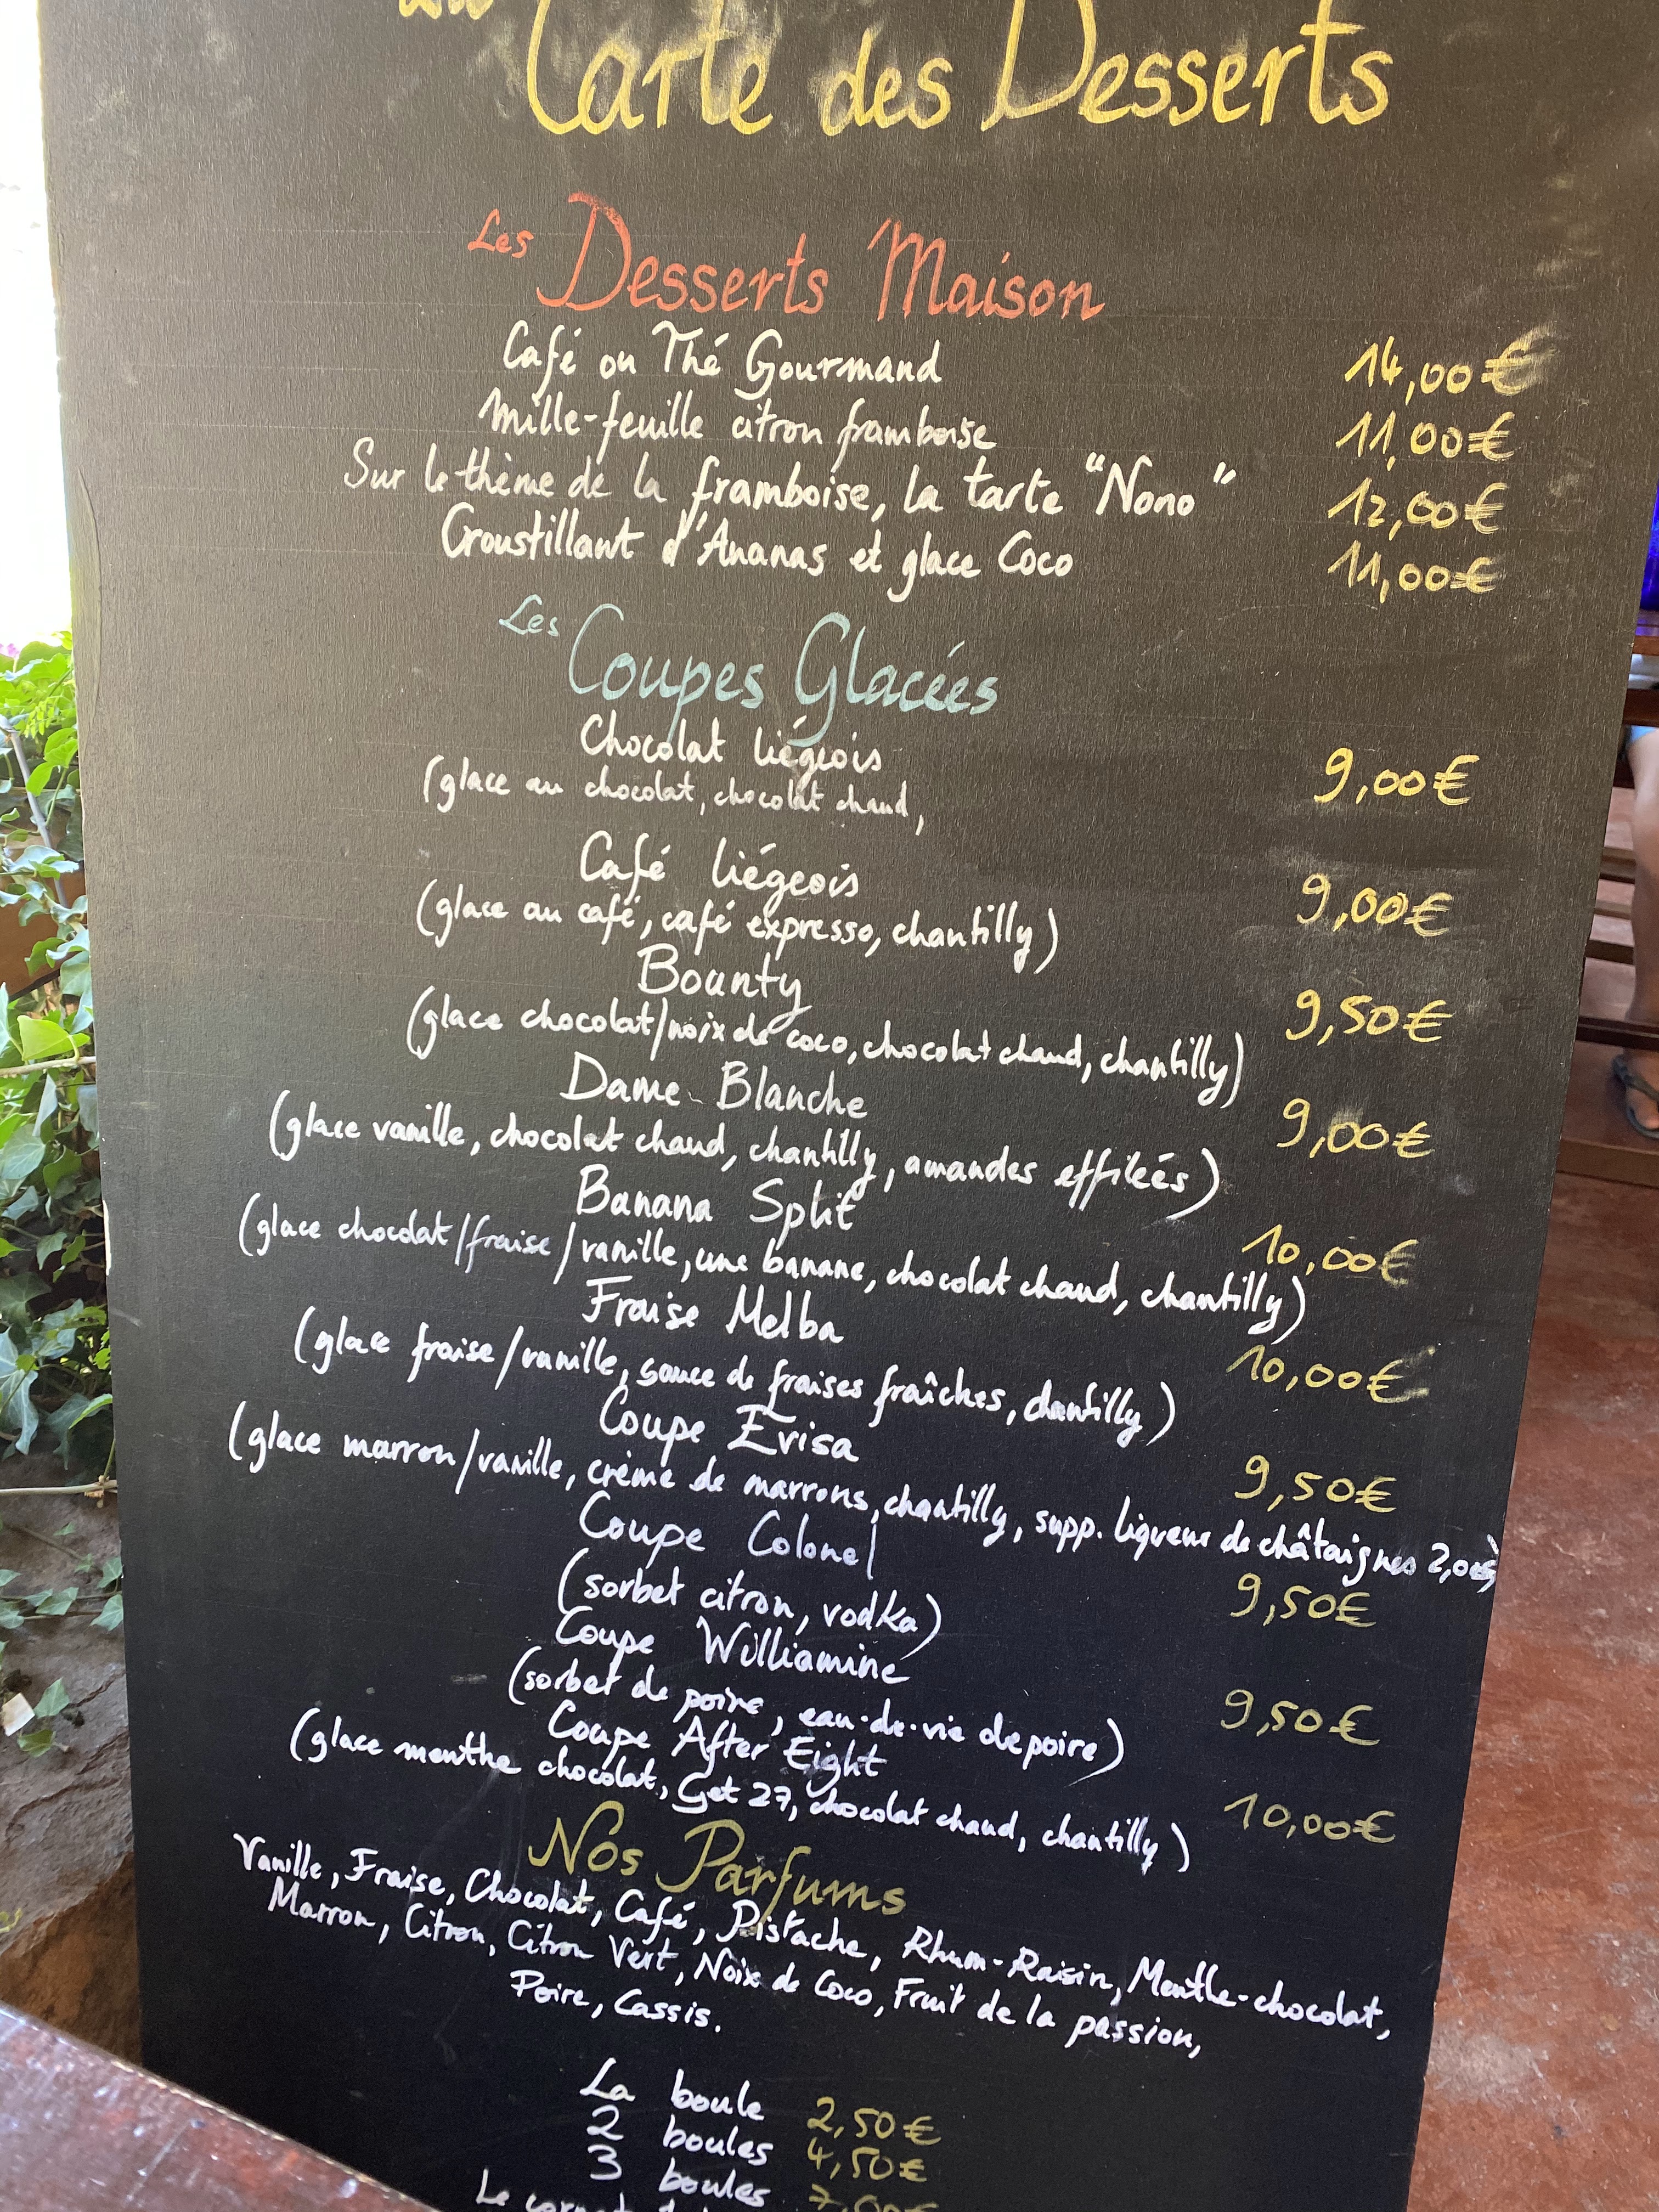 La
Carte des Desserts
Les Desserts Maison
Café ou Thé Gourmand 14,00€
Mille-feuille citron framboise 11,00€
Sur le thème de la framboise, la tarte "Nono" 12,00€
Croustillant d'Ananas et glace Coco 11,00€
Les Coupes Glacées
Chocolat Liégeois 9,00€
(glace au chocolat, chocolat chaud,
Café Liégeois 9,00€
(glace au café, café expresso, chantilly)
Bounty 9,50€
(glace chocolat/noix de coco, chocolat chaud, chantilly)
Dame-Blanche 9,00€
(glace vanille, chocolat chaud, chantilly, amandes effileés)
Banana Split 10,00€
(glace chocolat/fraise/vanille, une banane, chocolat chaud, chantilly)
Fraise Melba 10,00€
(glace fraise/vanille, sauce de fraises fraîches, chantilly)
Coupe Evisa 9,50€
(glace marron/vanille, crème de marrons, chantilly, supp. liqueur de châtaignes 2,00€)
Coupe Colonel 9,50€
(sorbet citron, vodka)
Coupe Williamine 9,50€
(sorbet de poire, eau-de-vie de poire)
Coupe After Eight 10,00€
(glace menthe chocolat, Get 27, chocolat chaud, chantilly)
Nos Parfums
Vanille, Fraise, Chocolat, Café, Pistache, Rhum-Raisin, Menthe-chocolat,
Marron, Citron, Citron Vert, Noix de Coco, Fruit de la passion,
Poire, Cassis.
La boule 2,50€
2 boules 4,50€
3 boules 7,00€
Le